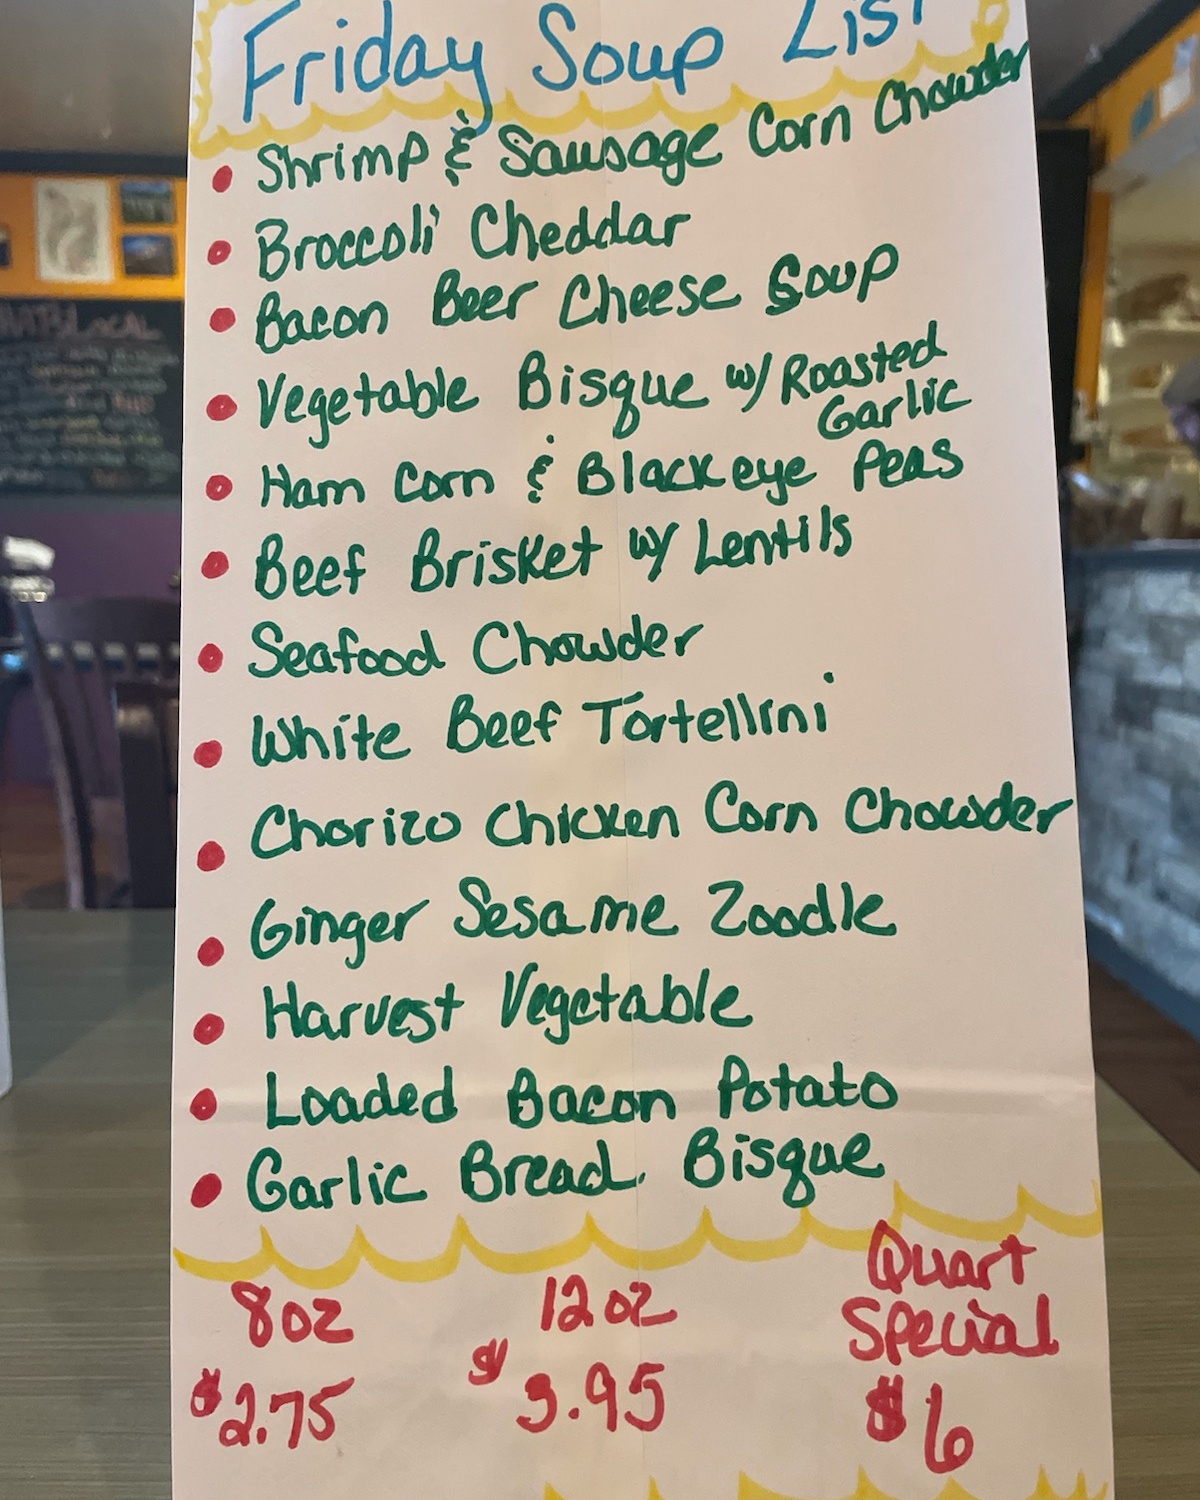 Friday Soup List
Shrimp & Sausage Corn Chowder
Broccoli Cheddar
Bacon Beer Cheese Soup
Vegetable Bisque w/ Roasted
Garlic
Ham Corn & Blackeye Peas
Beef Brisket w/ Lentils
Seafood Chowder
White Beef Tortellini
Chorizo Chicken Corn Chowder
Ginger Sesame Zoodle
Harvest Vegetable
Loaded Bacon Potato
Garlic Bread Bisque
8oz
$2.75
12oz
$3.95
Quart
Special
$6